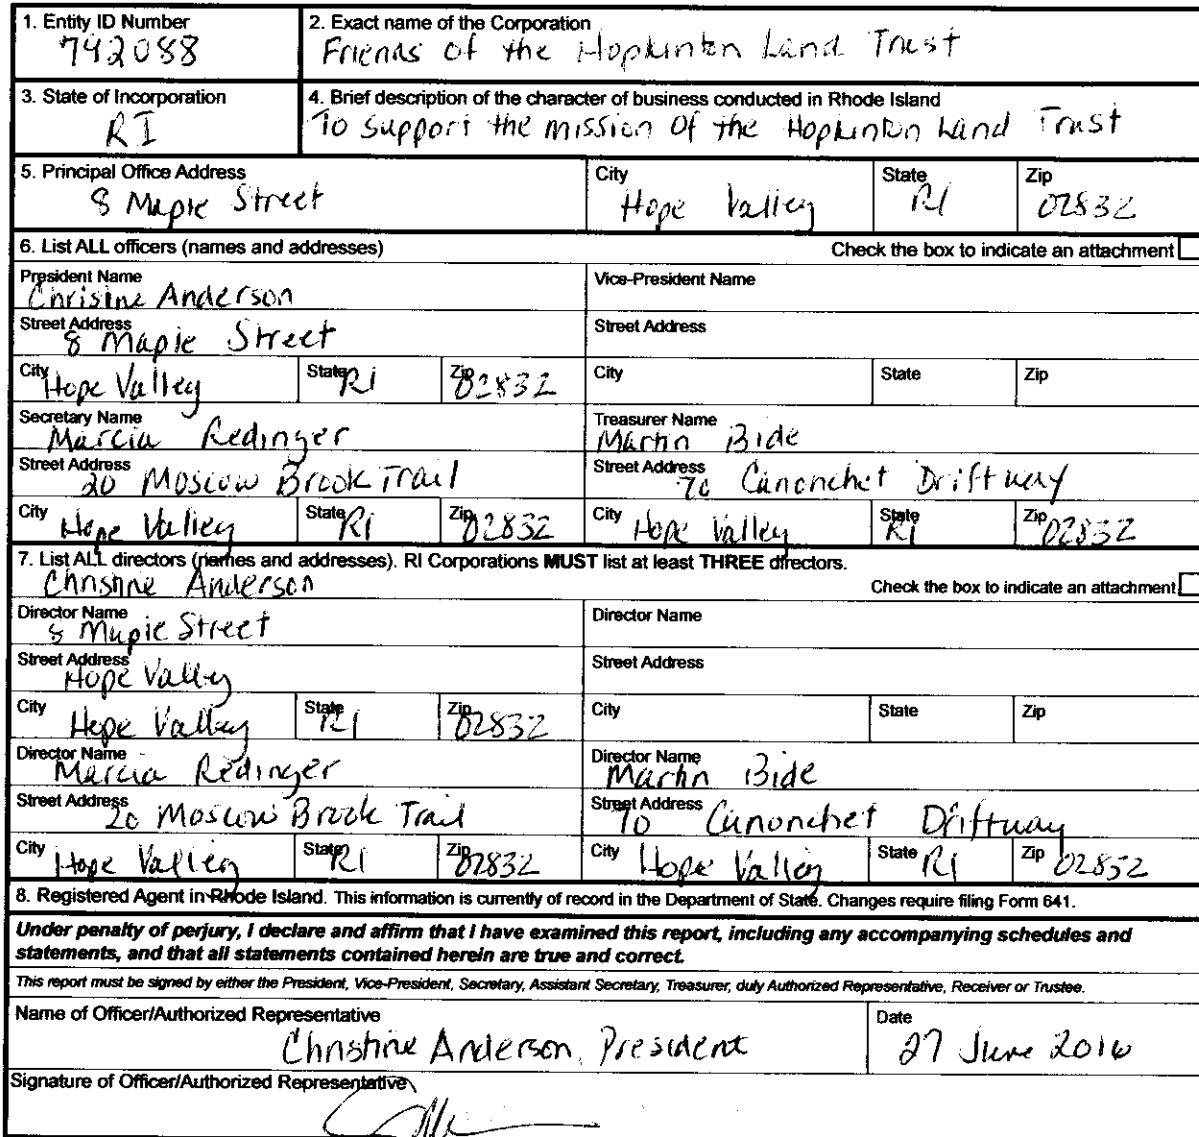 1. Entity ID Number
742088
2. Exact name of the Corporation
Friends of the Hopkinton Land Trust
3. State of Incorporation
RI
4. Brief description of the character of business conducted in Rhode Island
To support the mission of the Hopkinton Land Trust
5. Principal Office Address
8 Maple Street
City
Hope Valley
State
RI
Zip
02832
6. List ALL officers (names and addresses)
Check the box to indicate an attachment
President Name
Chrisine Anderson
Vice-President Name
Street Address
8 Maple Street
Street Address
City Hope Valley
State RI
Zip 02832
City
State
Zip
Secretary Name
Marcia Redinger
Treasurer Name
Martin Bide
Street Address
20 Moscow Brook Trail
Street Address
70 Canonchet Driftway
City Hope Valley
State RI
Zip 02832
City Hope Valley
State RI
Zip 02832
7. List ALL directors (names and addresses). RI Corporations MUST list at least THREE directors.
Christine Anderson
Check the box to indicate an attachment
Director Name
8 Maple Street
Director Name
Street Address
Hope Valley
Street Address
City Hope Valley
State RI
Zip 02832
City
State
Zip
Director Name
Marcia Redinger
Director Name
Martin Bide
Street Address
20 Moscow Brook Trail
Street Address
70 Canonchet Driftway
City Hope Valley
State RI
Zip 02832
City Hope Valley
State RI
Zip 02852
8. Registered Agent in Rhode Island. This information is currently of record in the Department of State. Changes require filing Form 641.
Under penalty of perjury, I declare and affirm that I have examined this report, including any accompanying schedules and
statements, and that all statements contained herein are true and correct.
This report must be signed by either the President, Vice-President, Secretary, Assistant Secretary, Treasurer, duly Authorized Representative, Receiver or Trustee.
Name of Officer/Authorized Representative
Christine Anderson, President
Date
27 June 2016
Signature of Officer/Authorized Representative